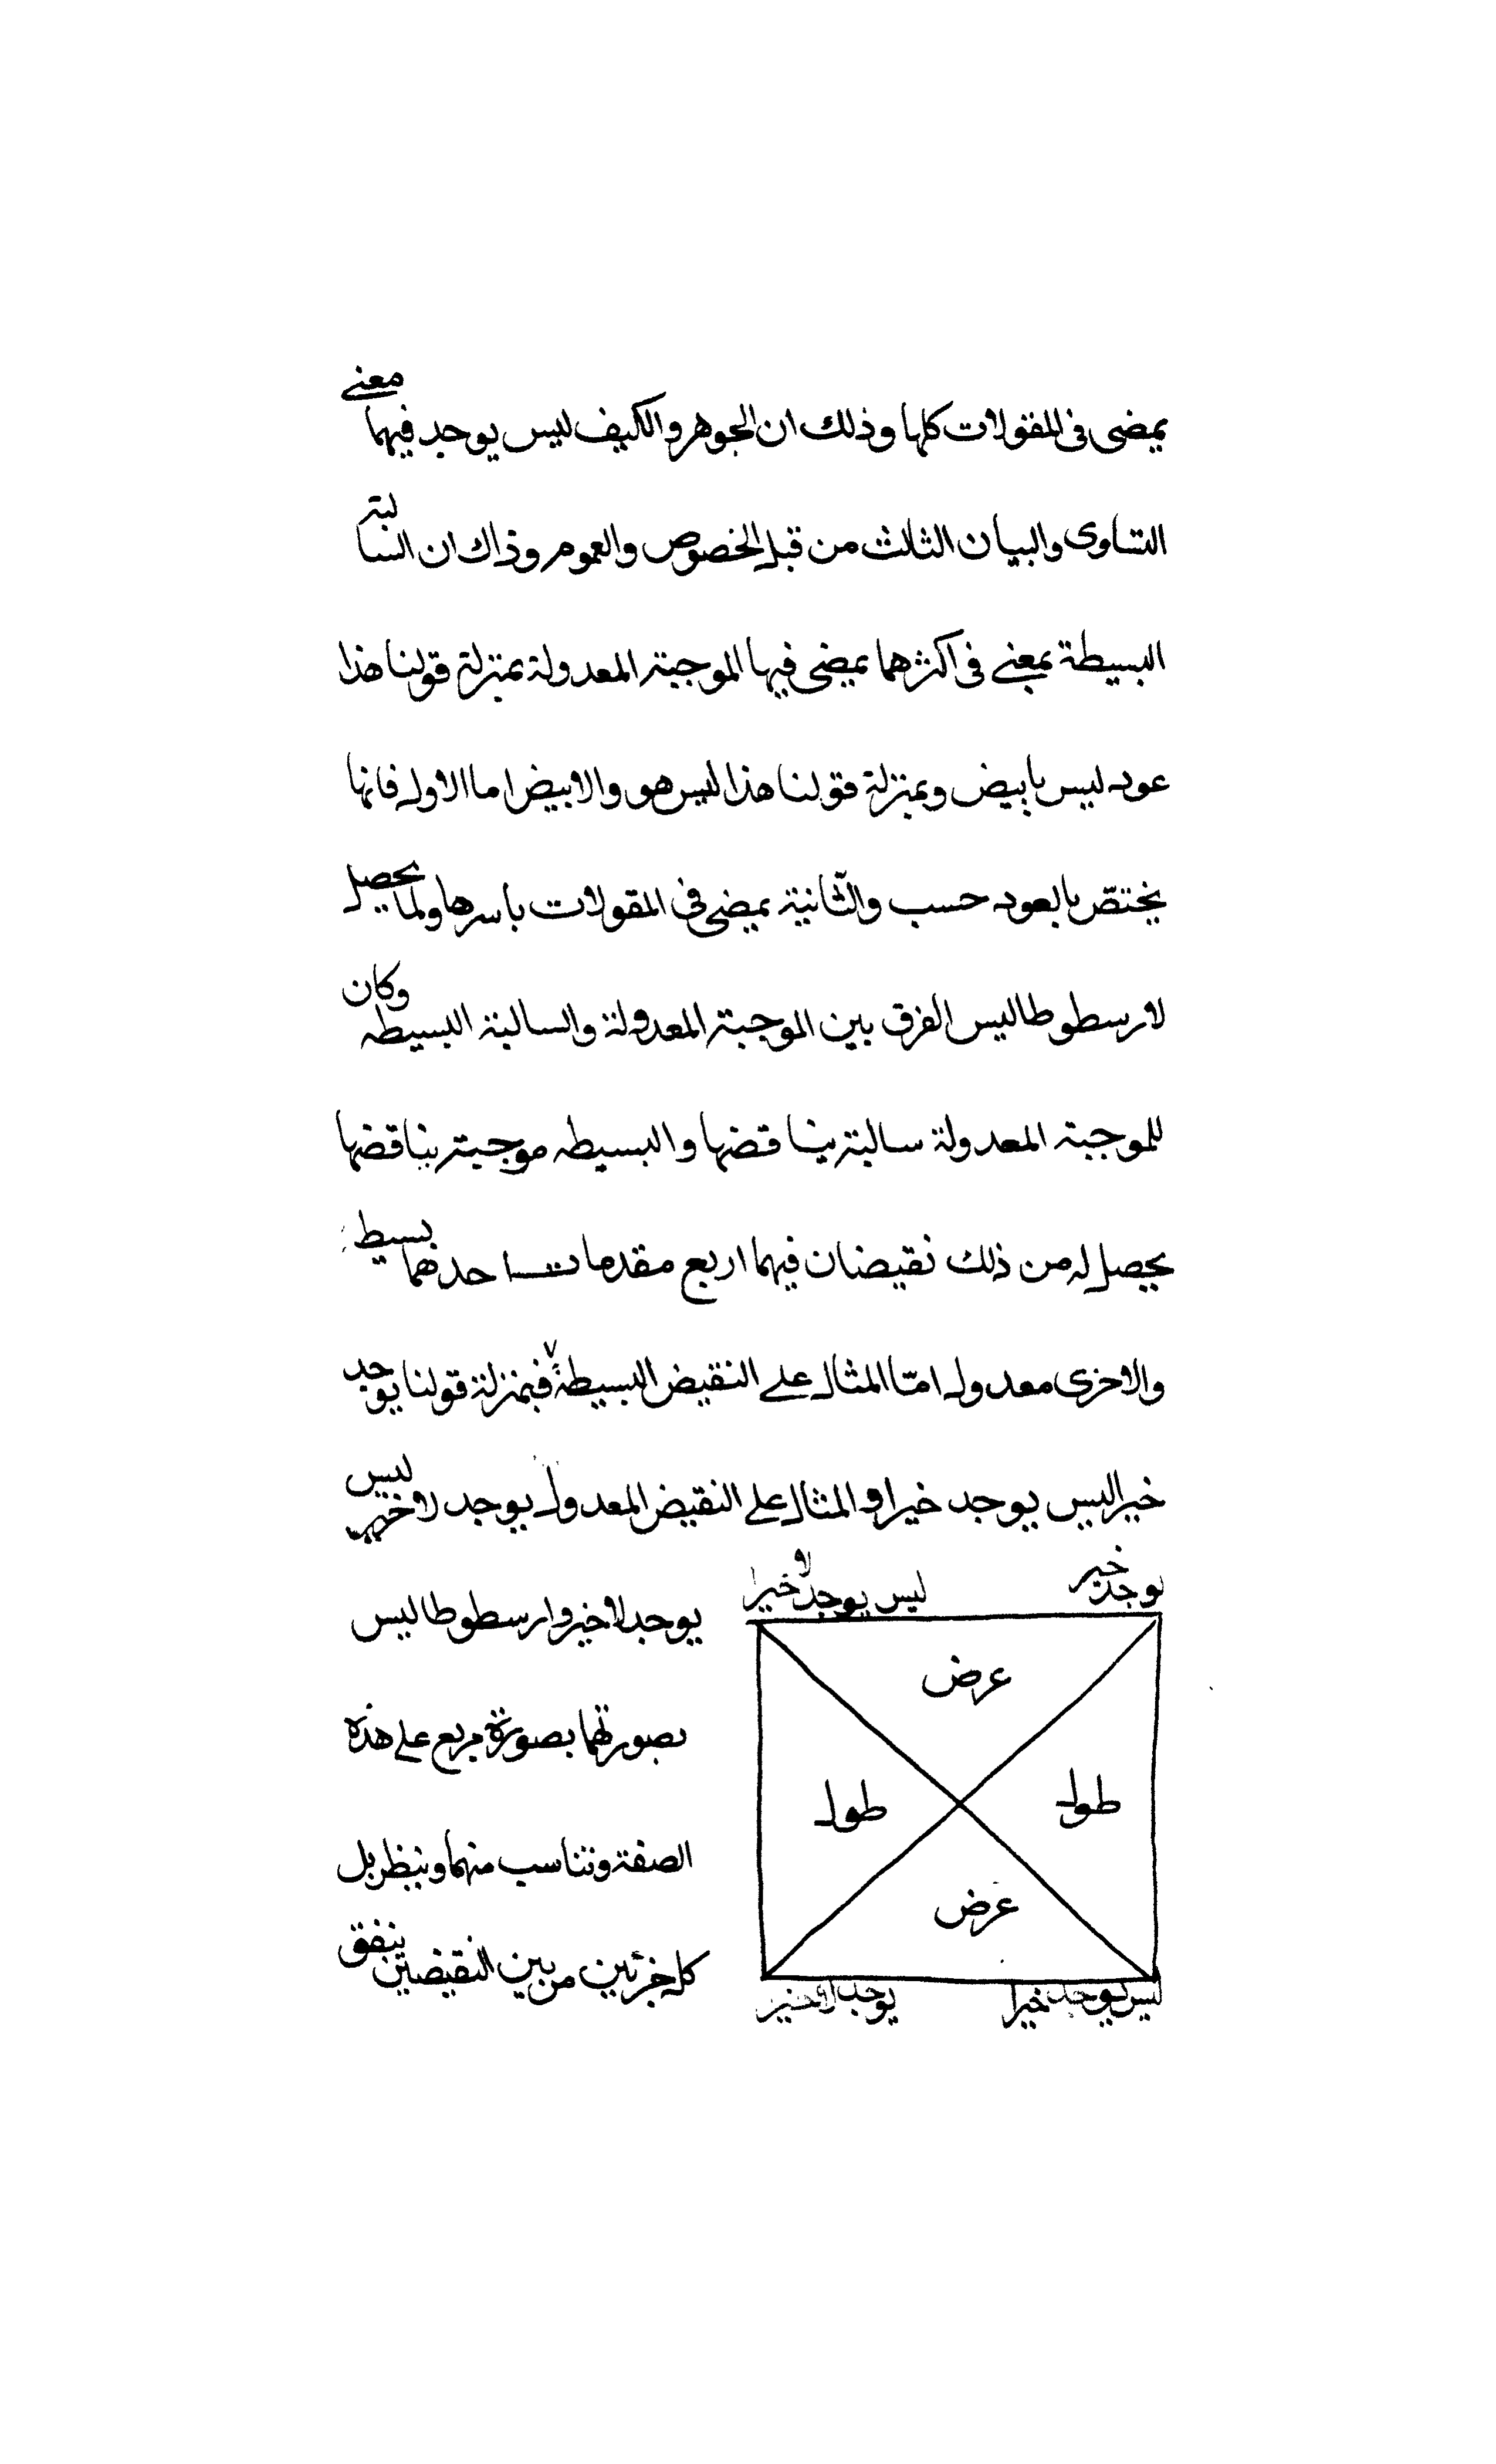 يمضى فى المقولات كلها وذلك ان الجوهر والكيف ليس يوجد فيهما معنى
التساوى والبيان الثالث من قبل الخصوص والعموم وذاك ان السالبة
البسيطة بمعنى فى اكثرهما يمضى فيها الموجبة المعدولة بمنزلة قولنا هذا
عود ليس بابيض وبمنزلة قولنا هذا ليس هو والابيض اما الاول فانها
يختص بالعود حسب والثانية يمضى فى المقولات باسرها ولما يحصل
لارسطوطاليس الفرق بين الموجبة المعدولة والسالبة البسيطه وكان
للموجبة المعدولة سالبة يناقضها والبسيطه موجبة يناقضها
يحصل له من ذلك نقيضان فيهما اربع مقدمات احدهما بسيط
والاخرى معدول امّا المثال على النقيض البسيطة فبمنزلة قولنا يوجد
خيرا ليس يوجد خيرا و المثال على النقيض المعدول يوجد لا خير ليس
يوجد لا خير وارسطوطاليس
بصورتهما بصورة مربع على هذه
الصفة وتناسب منهما وينظر بل
كل جزئين من بين النقيضين يتفق
يوجد خير
ليس يوجد لا خيرا
عرض
طول
طول
عرض
ليس يوجد خيرا
يوجد لا خير